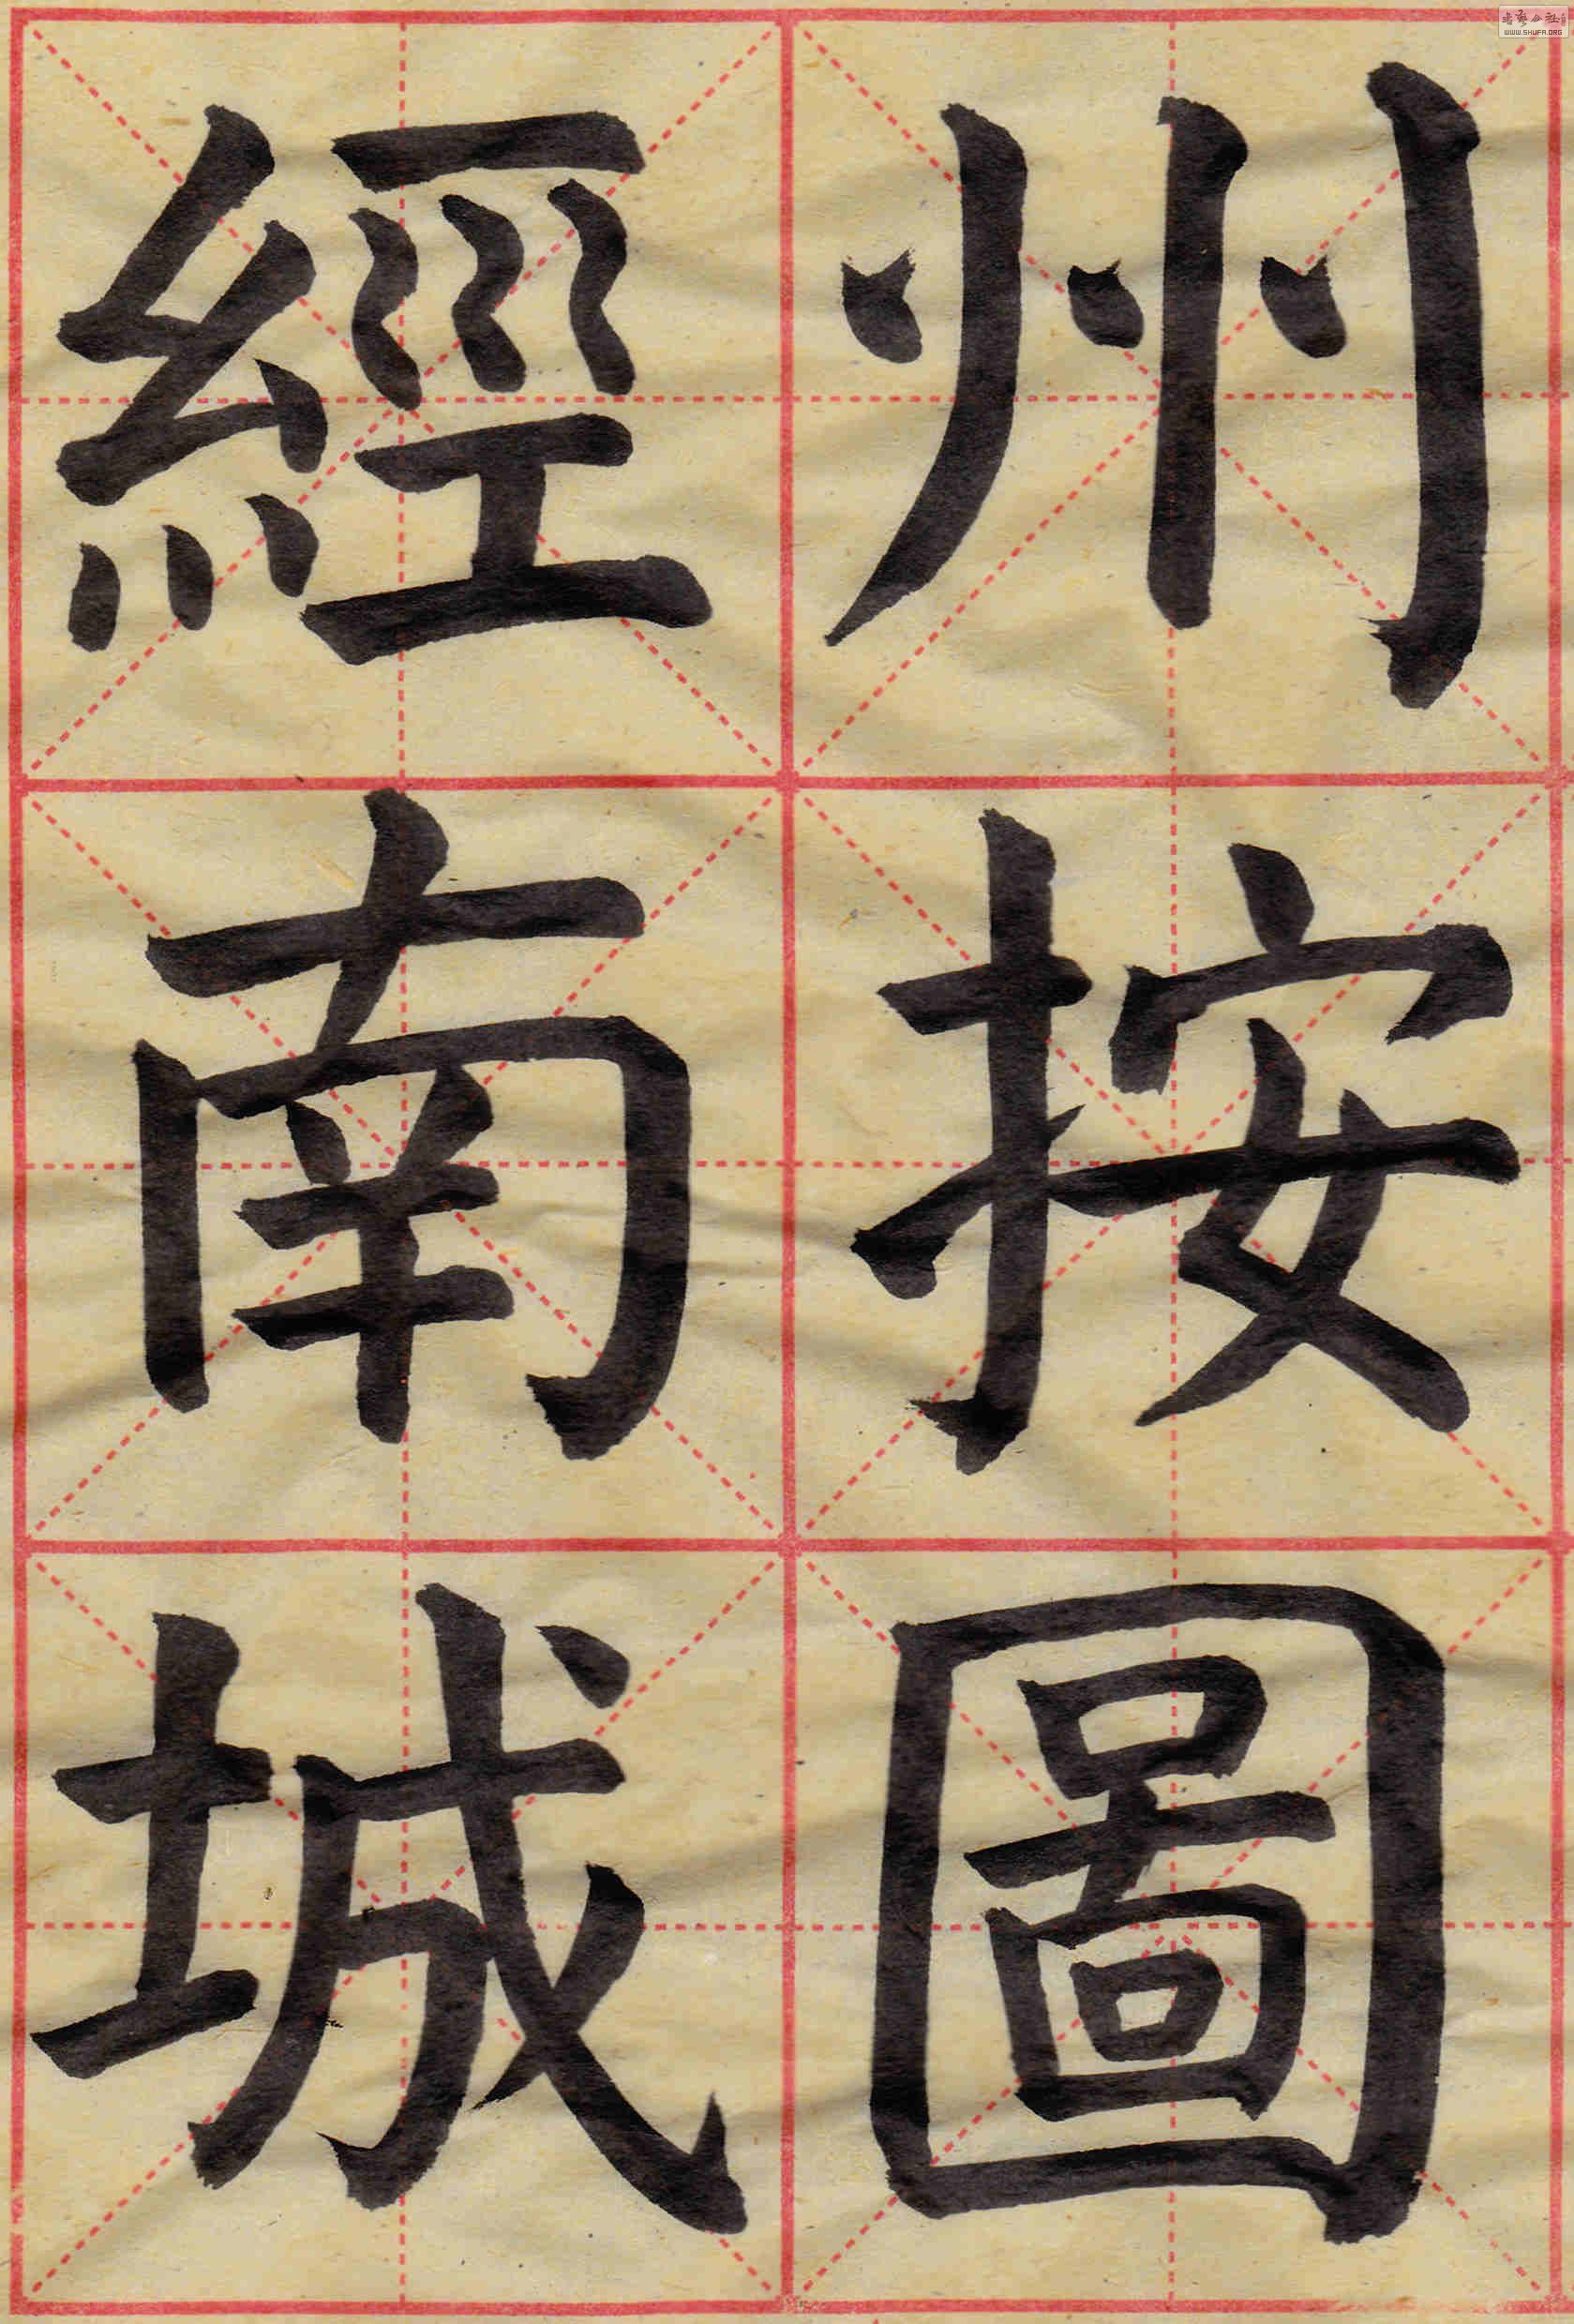 州按圖
經南城
WWW.SHUFA.ORG